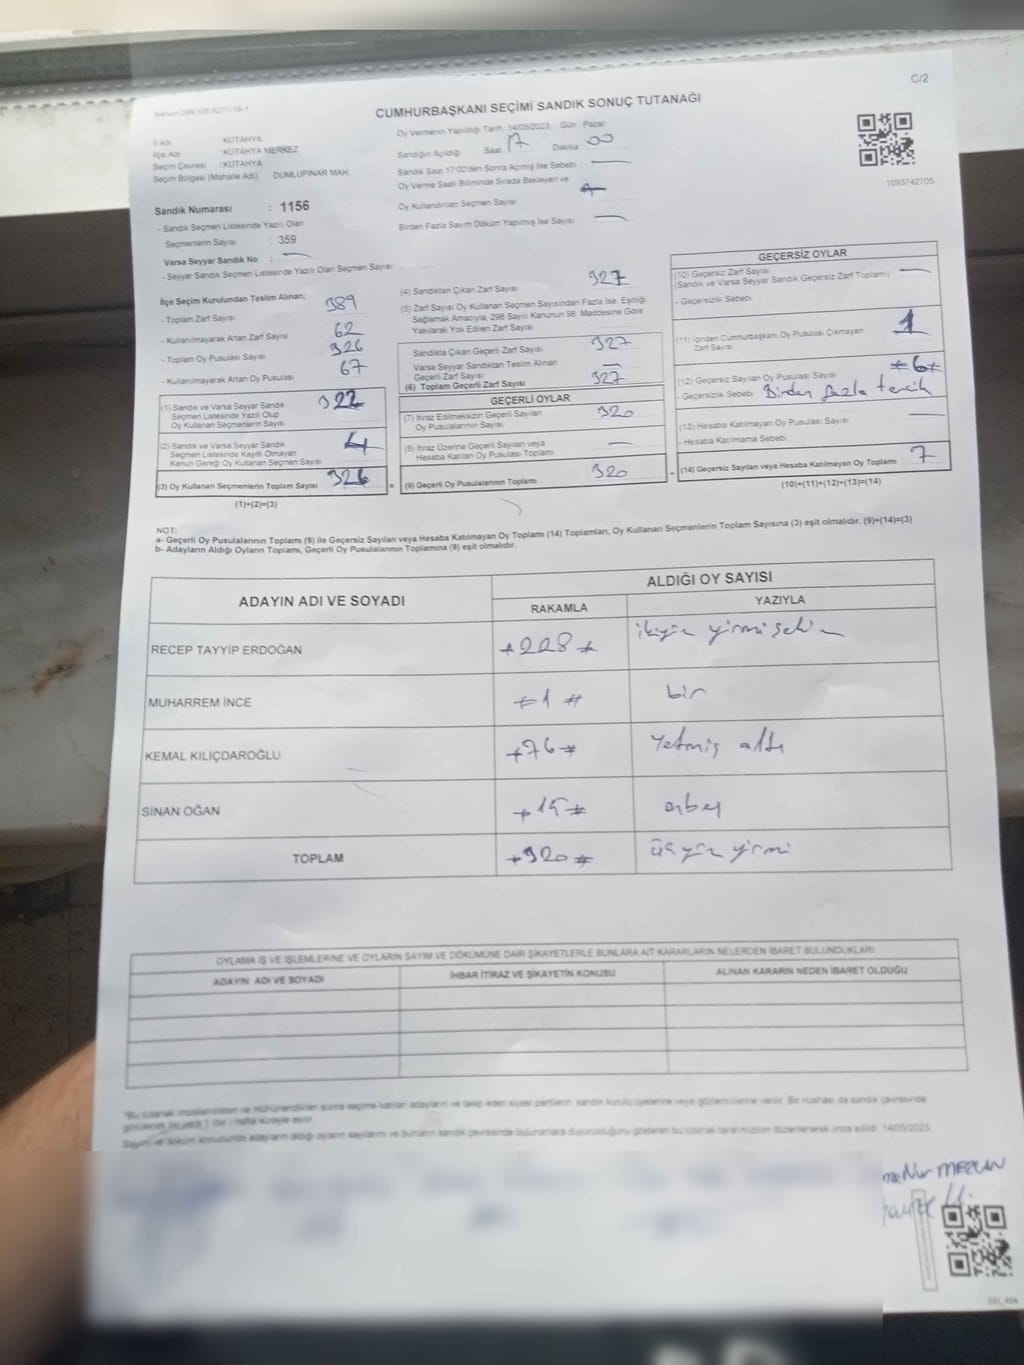 C/2
CUMHURBAŞKANI SEÇİMİ SANDIK SONUÇ TUTANAĞI
İl Adı : KÜTAHYA
İlçe Adı : KÜTAHYA MERKEZ
Seçim Çevresi : KÜTAHYA
Seçim Bölgesi (Mahalle Adı) DUMLUPINAR MAH.
Sandık Numarası : 1156
- Sandık Seçmen Listesinde Yazılı Olan
Seçmenlerin Sayısı : 359
Varsa Seyyar Sandık No : —
- Seyyar Sandık Seçmen Listesinde Yazılı Olan Seçmen Sayısı:
Oy Vermenin Yapıldığı Tarih :14/05/2023 Gün : Pazar
Sandığın Açıldığı Saat 17 Dakika 00
Sandık Saat 17:00'den Sonra Açılmış İse Sebebi —
Oy Verme Saati Bitiminde Sırada Bekleyen ve
Oy Kullandırılan Seçmen Sayısı
Birden Fazla Sayım Döküm Yapılmış İse Sayısı —
1093742705
İlçe Seçim Kurulundan Teslim Alınan;
- Toplam Zarf Sayısı 389
- Kullanılmayarak Artan Zarf Sayısı 62
- Toplam Oy Pusulası Sayısı 326
- Kullanılmayarak Artan Oy Pusulası 67
(1) Sandık ve Varsa Seyyar Sandık
Seçmen Listesinde Yazılı Olup
Oy Kullanan Seçmenlerin Sayısı 322
(2) Sandık ve Varsa Seyyar Sandık
Seçmen Listesinde Kayıtlı Olmayan
Kanun Gereği Oy Kullanan Seçmen Sayısı 4
(3) Oy Kullanan Seçmenlerin Toplam Sayısı 326
(1)+(2)=(3)
(4) Sandıktan Çıkan Zarf Sayısı 327
(5) Zarf Sayısı Oy Kullanan Seçmen Sayısından Fazla İse, Eşitliği
Sağlamak Amacıyla, 298 Sayılı Kanunun 98. Maddesine Göre
Yakılarak Yok Edilen Zarf Sayısı
Sandıkta Çıkan Geçerli Zarf Sayısı 327
Varsa Seyyar Sandıktan Teslim Alınan
Geçerli Zarf Sayısı —
(6) Toplam Geçerli Zarf Sayısı 327
GEÇERLİ OYLAR
(7) İtiraz Edilmeksizin Geçerli Sayılan
Oy Pusulalarının Sayısı 320
(8) İtiraz Üzerine Geçerli Sayılan veya
Hesaba Katılan Oy Pusulası Toplamı —
(9) Geçerli Oy Pusulalarının Toplamı 320
GEÇERSİZ OYLAR
(10) Geçersiz Zarf Sayısı
(Sandık ve Varsa Seyyar Sandık Geçersiz Zarf Toplamı) —
- Geçersizlik Sebebi
(11) İçinden Cumhurbaşkanı Oy Pusulası Çıkmayan
Zarf Sayısı 1
(12) Geçersiz Sayılan Oy Pusulası Sayısı #6#
- Geçersizlik Sebebi Birden fazla tercih
(13) Hesaba Katılmayan Oy Pusulası Sayısı
- Hesaba Katılmama Sebebi
(14) Geçersiz Sayılan veya Hesaba Katılmayan Oy Toplamı 7
(10)+(11)+(12)+(13)=(14)
NOT:
a- Geçerli Oy Pusulalarının Toplamı (9) ile Geçersiz Sayılan veya Hesaba Katılmayan Oy Toplamı (14) Toplamları, Oy Kullanan Seçmenlerin Toplam Sayısına (3) eşit olmalıdır. (9)+(14)=(3)
b- Adayların Aldığı Oyların Toplamı, Geçerli Oy Pusulalarının Toplamına (9) eşit olmalıdır.
ADAYIN ADI VE SOYADI ALDIĞI OY SAYISI
RAKAMLA YAZIYLA
RECEP TAYYİP ERDOĞAN #228# ikiyüz yirmi sekiz
MUHARREM İNCE #1# bir
KEMAL KILIÇDAROĞLU #76# Yetmiş altı
SİNAN OĞAN #15# onbeş
TOPLAM #320# üçyüz yirmi
OYLAMA İŞ VE İŞLEMLERİNE VE OYLARIN SAYIM VE DÖKÜMÜNE DAİR ŞİKAYETLERLE BUNLARA AİT KARARLARIN NELERDEN İBARET BULUNDUKLARI
ADAYIN ADI VE SOYADI İHBAR İTİRAZ VE ŞİKAYETİN KONUSU ALINAN KARARIN NEDEN İBARET OLDUĞU
"Bu tutanak imzalandıktan ve mühürlendikten sonra seçime katılan adayların ve talep eden siyasi partilerin sandık kurulu üyelerine veya gözlemcilerine verilir. Bir nüshası da sandık çevresinde
görülecek bir yere 1 (bir) hafta süreyle asılır.
Sayım ve döküm konusunda adayların aldığı oyların sayılarını ve bunların sandık çevresinde bulunanlara duyurulduğunu gösteren bu tutanak tarafımızdan düzenlenerek imza edildi. 14/05/2023